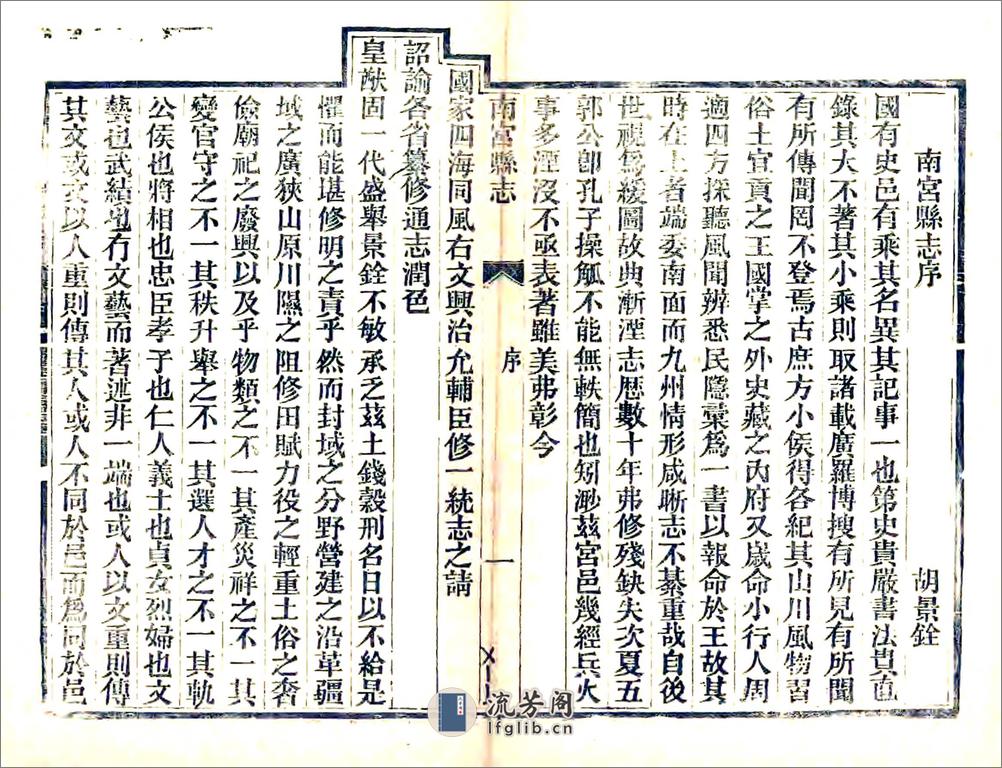 南宮縣志序
胡景銓
國有史邑有乘其名異其記事一也第史貴嚴書法貴直
錄其大不著其小乘則取諸載廣羅博搜有所見有所聞
有所傳聞罔不登焉古庶方小侯得各紀其山川風物習
俗土宜貢之王國掌之外史藏之內府又歲命小行人周
適四方採聽風聞辨悉民隱彙為一書以報命於王故其
時在上者端委南面而九州情形咸晰志不綦重哉自後
世視為緩圖故典漸湮志歷數十年弗修殘缺失次夏五
郭公卽孔子操觚不能無軼簡也矧渺茲宮邑幾經兵火
事多湮沒不亟表著雖美弗彰今
南宮縣志
序
一
國家四海同風右文興治允輔臣修一統志之請
詔諭各省纂修通志潤色
皇猷固一代盛舉景銓不敏承乏茲土錢穀刑名日以不給是
懼而能堪修明之責乎然而封域之分野營建之沿革疆
域之廣狹山原川隰之阻修田賦力役之輕重土俗之奢
儉廟祀之廢興以及乎物類之不一其產災祥之不一其
變官守之不一其秩升舉之不一其選人才之不一其軌
公侯也將相也忠臣孝子也仁人義士也貞女烈婦也文
藝也武績也冇文藝而著述非一端也或人以文重則傳
其文或文以人重則傳其人或人不同於邑而為同於邑
流芳阁
lfglib.cn